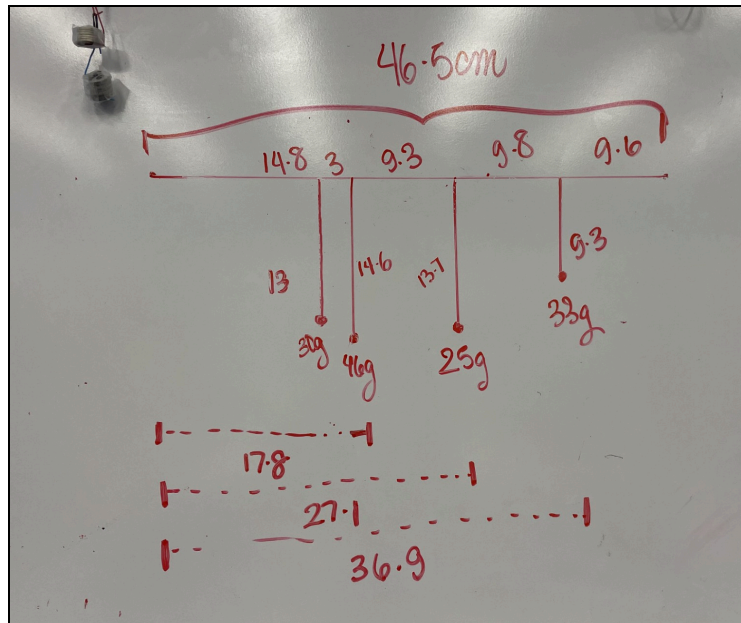 46.5cm
14.8 3 9.3 9.8 9.6
13 14.6 13.7 9.3
30g 46g 25g 33g
17.8
27.1
36.9